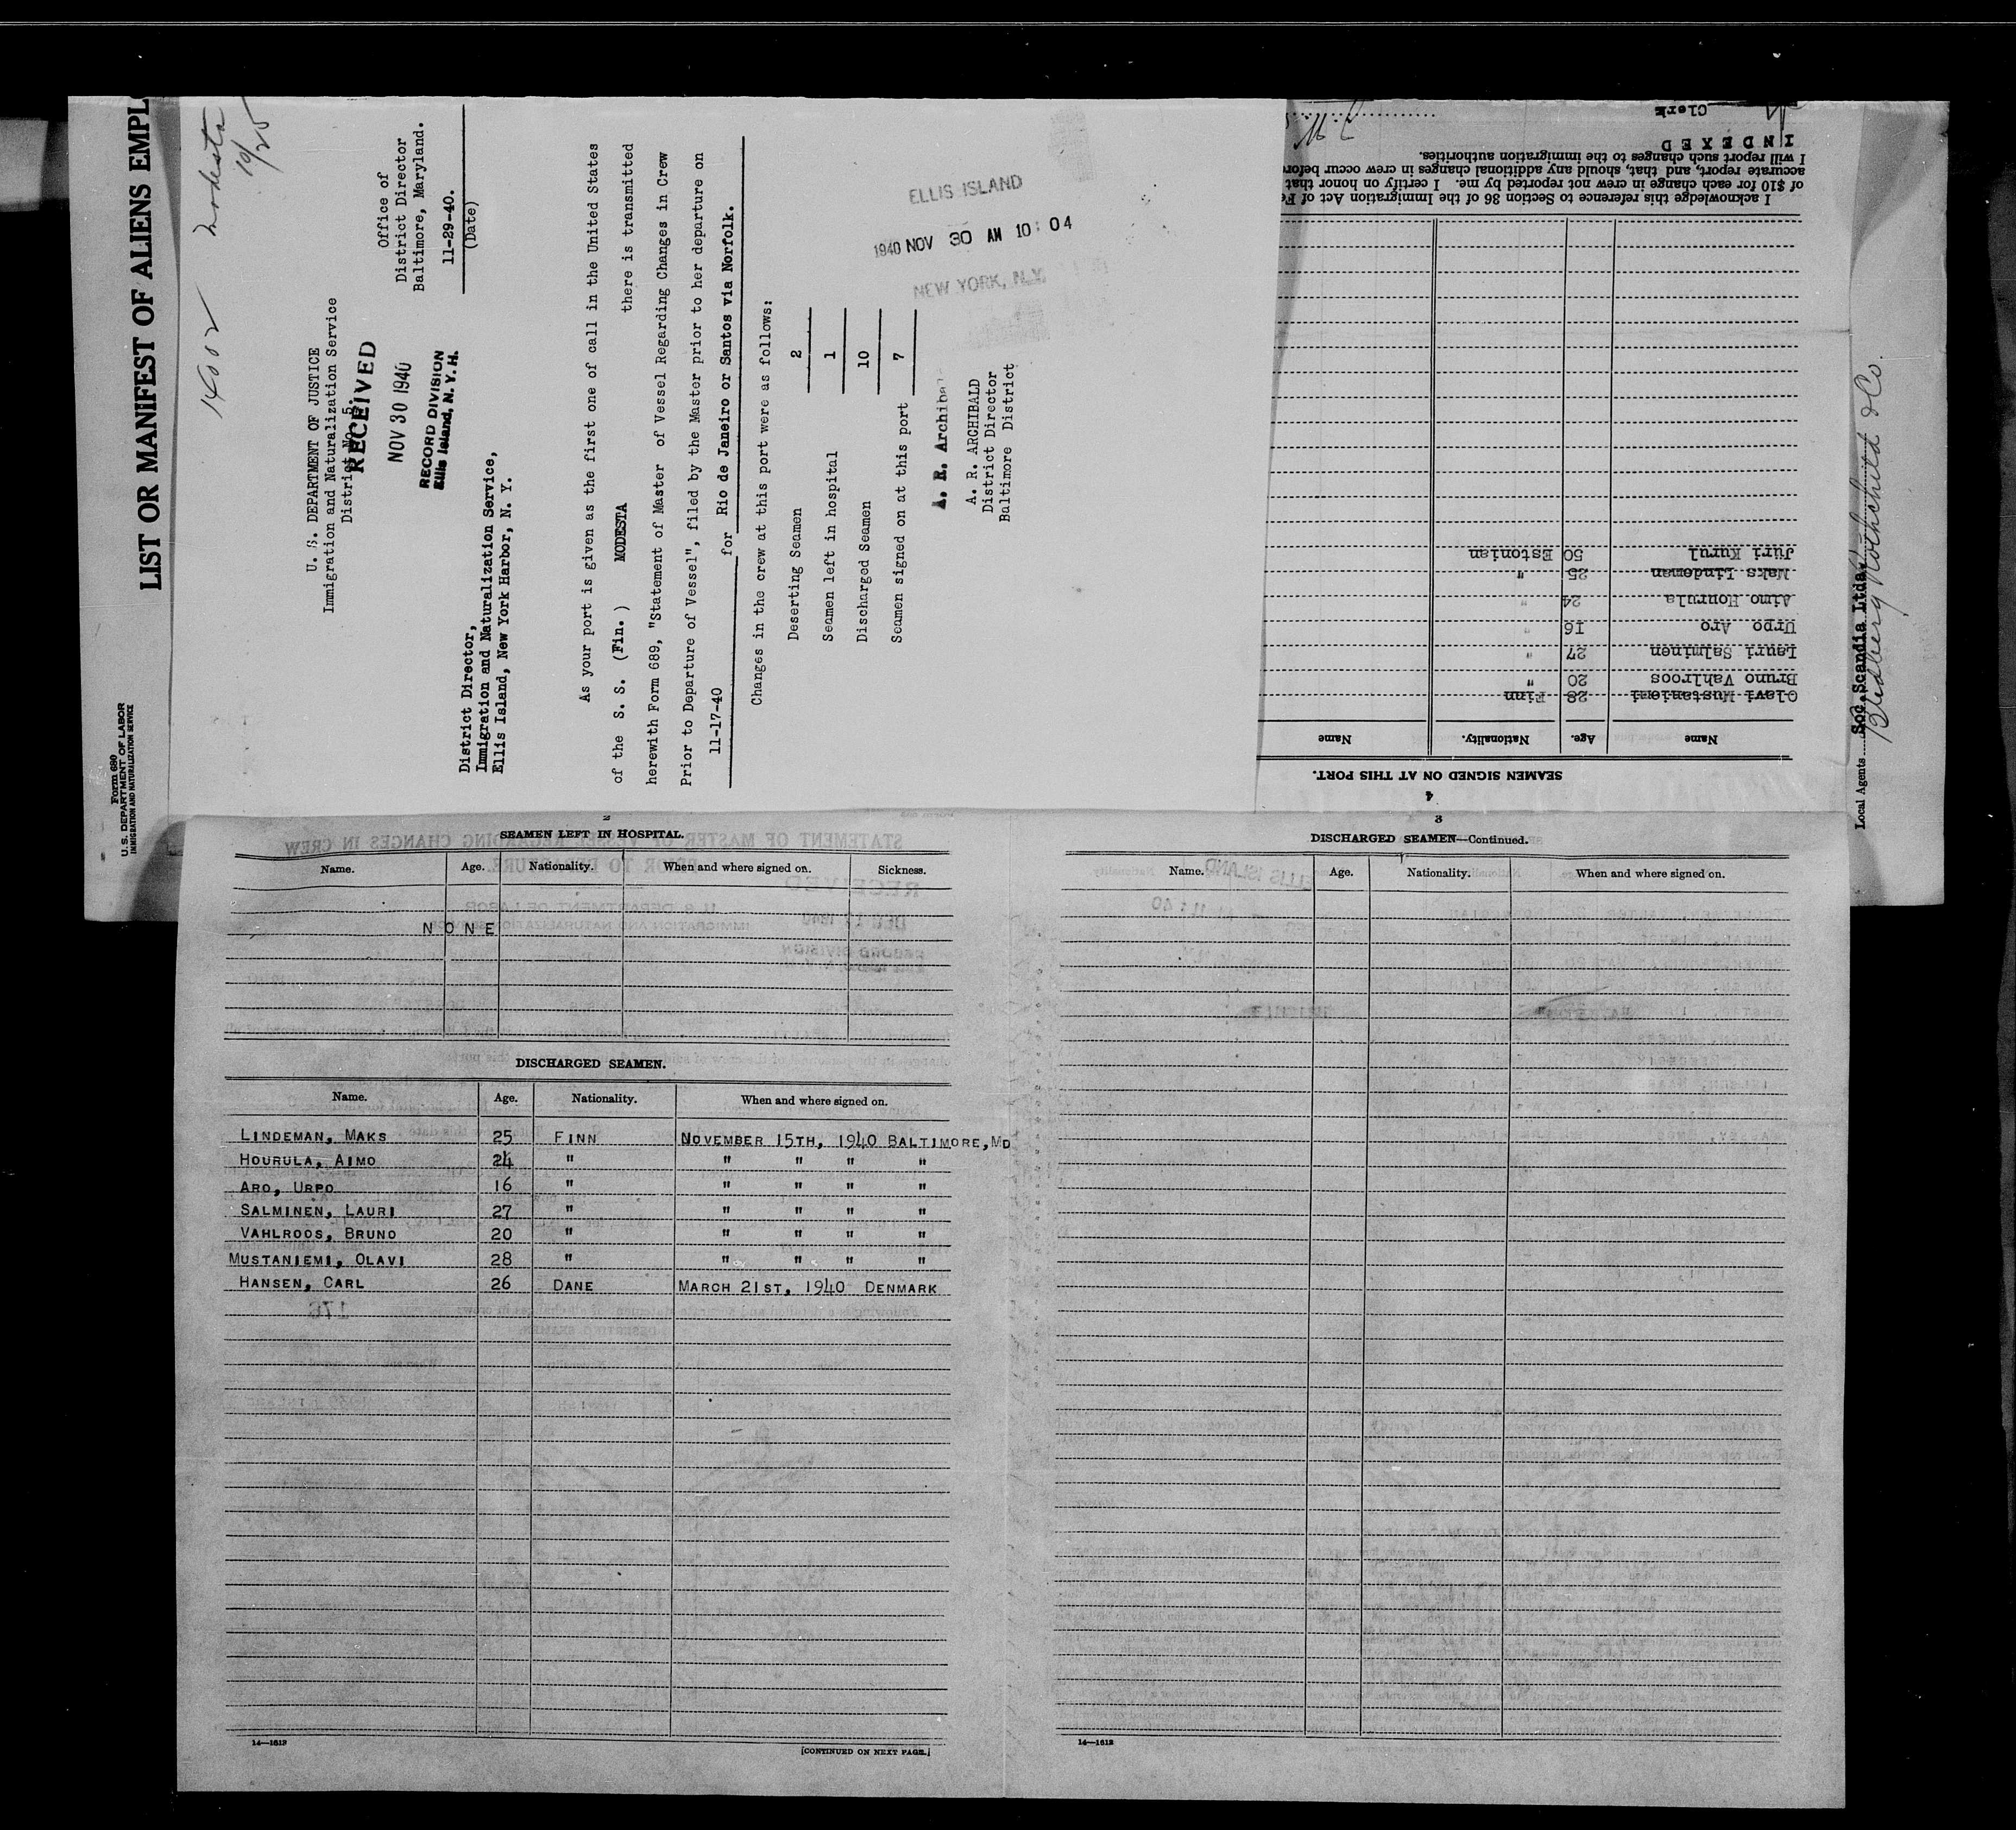 LIST OR MANIFEST OF ALIENS EMPL
Form 680
U. S. DEPARTMENT OF LABOR
IMMIGRATION AND NATURALIZATION SERVICE
Modesta
10/25
14002
U. S. DEPARTMENT OF JUSTICE
Immigration and Naturalization Service
District No. 5.
RECEIVED
NOV 30 1940
RECORD DIVISION
Ellis Island, N. Y. H.
Office of
District Director
Baltimore, Maryland.
11-29-40.
(Date)
District Director,
Immigration and Naturalization Service,
Ellis Island, New York Harbor, N. Y.
As your port is given as the first one of call in the United States
of the S. S. (Fin. ) MODESTA there is transmitted
herewith Form 689, "Statement of Master of Vessel Regarding Changes in Crew
Prior to Departure of Vessel", filed by the Master prior to her departure on
11-17-40 for Rio de Janeiro or Santos via Norfolk.
Changes in the crew at this port were as follows:
Deserting Seamen 2
Seamen left in hospital 1
Discharged Seamen 10
Seamen signed on at this port 7
A. R. Archibal
A. R. ARCHIBALD
District Director
Baltimore District
ELLIS ISLAND
1940 NOV 30 AM 10:04
NEW YORK, N.Y.
4
SEAMEN SIGNED ON AT THIS PORT.
Name Age. Nationality. Name
Olavi Mustaniemi 28 Finn
Bruno Vahlroos 20 "
Lauri Salminen 27 "
Urpo Aro 16 "
Aimo Hourula 24 "
Maks Lindeman 25 "
Juri Kurul 50 Estonian
I acknowledge this reference to Section 36 of the Immigration Act of Fe
of $10 for each change in crew not reported by me. I certify on honor that
accurate report, and that, should any additional changes in crew occur before
I will report such changes to the immigration authorities.
INDEXED
Clerk
Local Agents Soc. Scandia Ltda.
Rothchild & Co.
2
SEAMEN LEFT IN HOSPITAL.
Name. Age. Nationality. When and where signed on. Sickness.
NONE
DISCHARGED SEAMEN.
Name. Age. Nationality. When and where signed on.
LINDEMAN, MAKS 25 FINN NOVEMBER 15TH, 1940 BALTIMORE, MD
HOURULA, AIMO 24 " " " " "
ARO, URPO 16 " " " " "
SALMINEN, LAURI 27 " " " " "
VAHLROOS, BRUNO 20 " " " " "
MUSTANIEMI, OLAVI 28 " " " " "
HANSEN, CARL 26 DANE MARCH 21ST, 1940 DENMARK
14—1613
[CONTINUED ON NEXT PAGE.]
3
DISCHARGED SEAMEN—Continued.
Name. Age. Nationality. When and where signed on.
14—1612